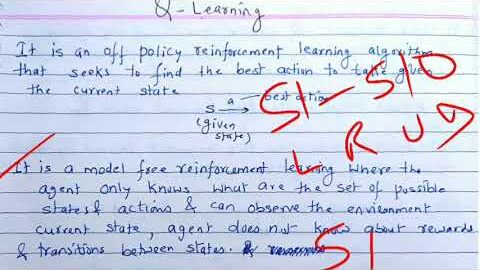 Q-Learning
It is an off policy reinforcement learning algorithm
that seeks to find the best action to take given
the current state
S a → best action
(given state)
S1 – S10
L R U D
It is a model free reinforcement learning where the
agent only knows what are the set of possible
states & actions & can observe the environment
current state, agent does not know about rewards
& transitions between states.
S1